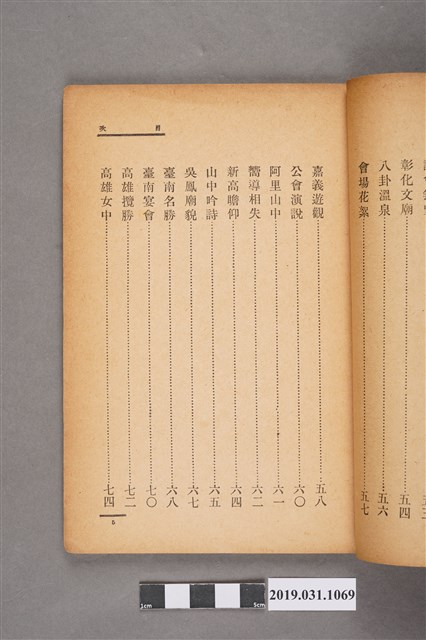 彰化文廟 五四
八卦溫泉 五六
會場花絮 五七
目次
嘉義遊觀 五八
公會演說 六〇
阿里山中 六一
嚮導相失 六二
新高瞻仰 六四
山中吟詩 六五
吳鳳廟貌 六七
臺南名勝 六八
臺南宴會 七〇
高雄攬勝 七二
高雄女中 七四
5
1cm
5cm
2019.031.1069